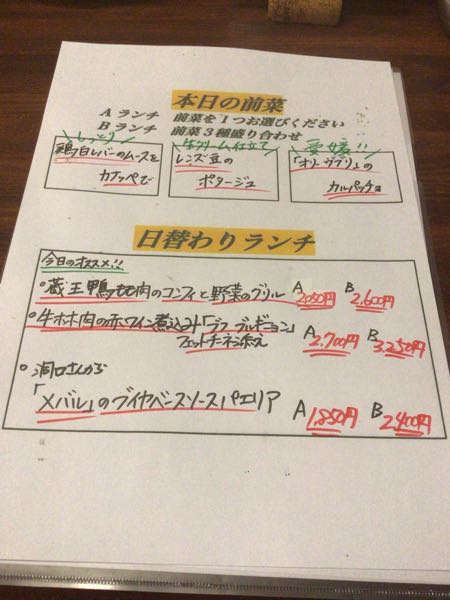 本日の前菜
Aランチ 前菜を1つお選びください
Bランチ 前菜3種盛り合わせ
しっとり
鶏白レバーのムースを
カナッペで
生クリーム仕立て
レンズ豆の
ポタージュ
愛媛!!
「オリーブブリ」の
カルパッチョ
日替わりランチ
今日のオススメ!!
・蔵王鴨もも肉のコンフィと野菜のグリル A 2,050円 B 2,600円
・牛ホホ肉の赤ワイン煮込み「ブフ ブルギニョン」
フェットチーネ添え A 2,700円 B 3,250円
・洞口さんから
「メバル」のブイヤベースソースパエリア A 1,850円 B 2,400円